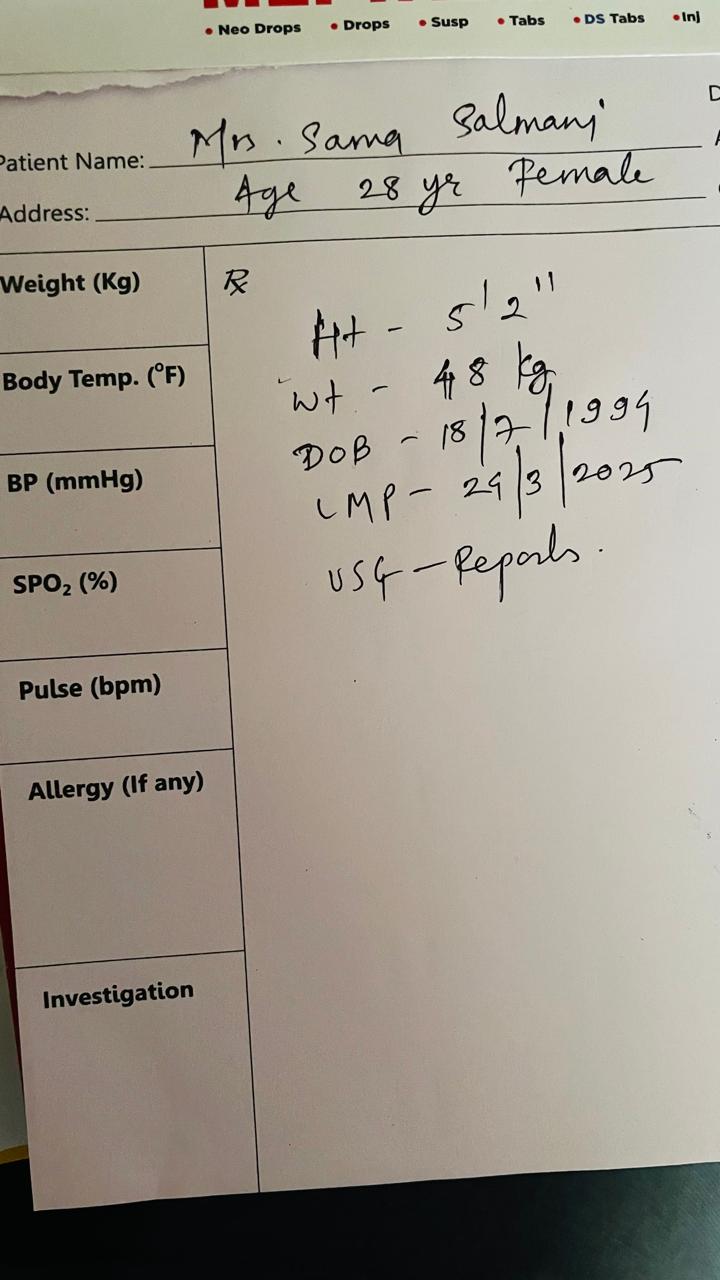 • Neo Drops • Drops • Susp • Tabs • DS Tabs • Inj
Patient Name: Mrs. Sama Salmani
Address: Age 28 yr Female
Weight (Kg)
Rx
Ht - 5'2"
Body Temp. (°F)
Wt - 48 kg
DOB - 18/7/1994
BP (mmHg)
LMP - 29/3/2025
SPO₂ (%)
USG - Reports.
Pulse (bpm)
Allergy (If any)
Investigation